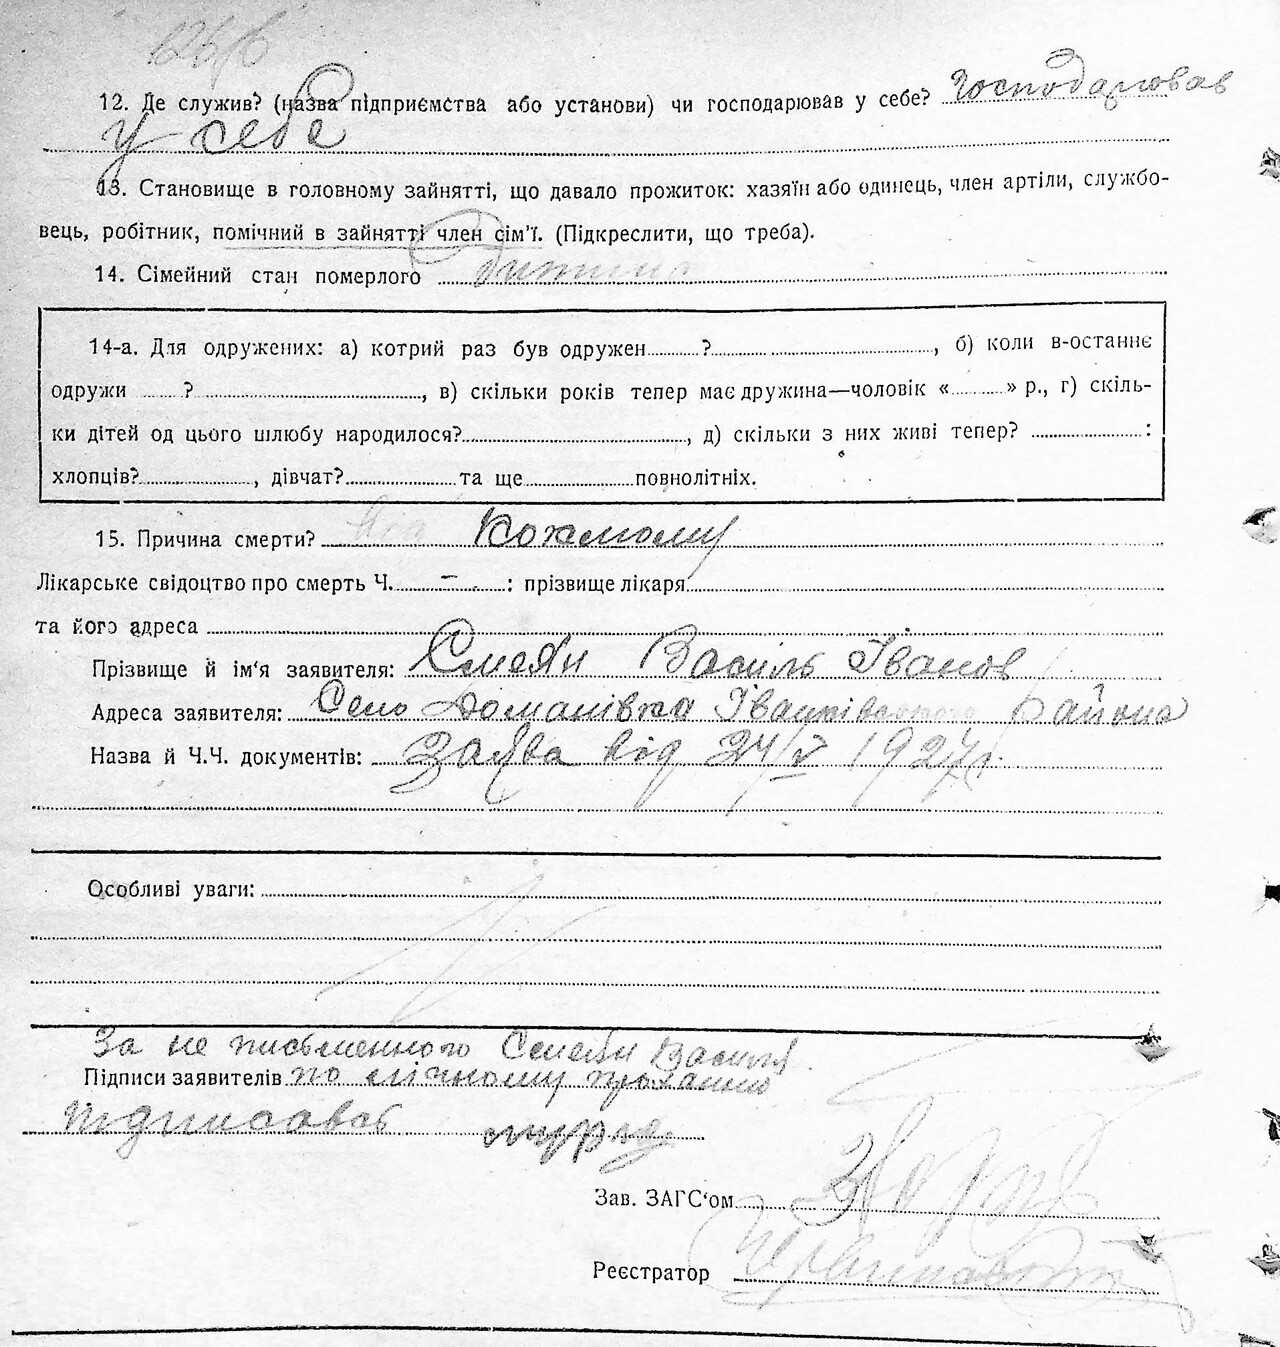 12. Де служив? (назва підприємства або установи) чи господарював у себе? Господарював
у себе
13. Становище в головному зайнятті, що давало прожиток: хазяїн або одинець, член артіли, службо-
вець, робітник, помічний в зайнятті член сім'ї. (Підкреслити, що треба).
14. Сімейний стан померлого дитина
14-а. Для одружених: а) котрий раз був одружен ? , б) коли в-останнє
одружи ? , в) скільки років тепер має дружина—чоловік « » р., г) скіль-
ки дітей од цього шлюбу народилося? , д) скільки з них живі тепер? :
хлопців? , дівчат? та ще повнолітніх.
15. Причина смерти? від
Лікарське свідоцтво про смерть Ч. – : прізвище лікаря
та його адреса
Прізвище й ім'я заявителя: Смеян Василь Іванов
Адреса заявителя: Село Доманівка Іванківського Району
Назва й Ч.Ч. документів: Заява від 24/V 1927р.
Особливі уваги:
За не письменного Смеян Василя
Підписи заявителів по лічному проханню
підписався
Зав. ЗАГС'ом
Реєстратор